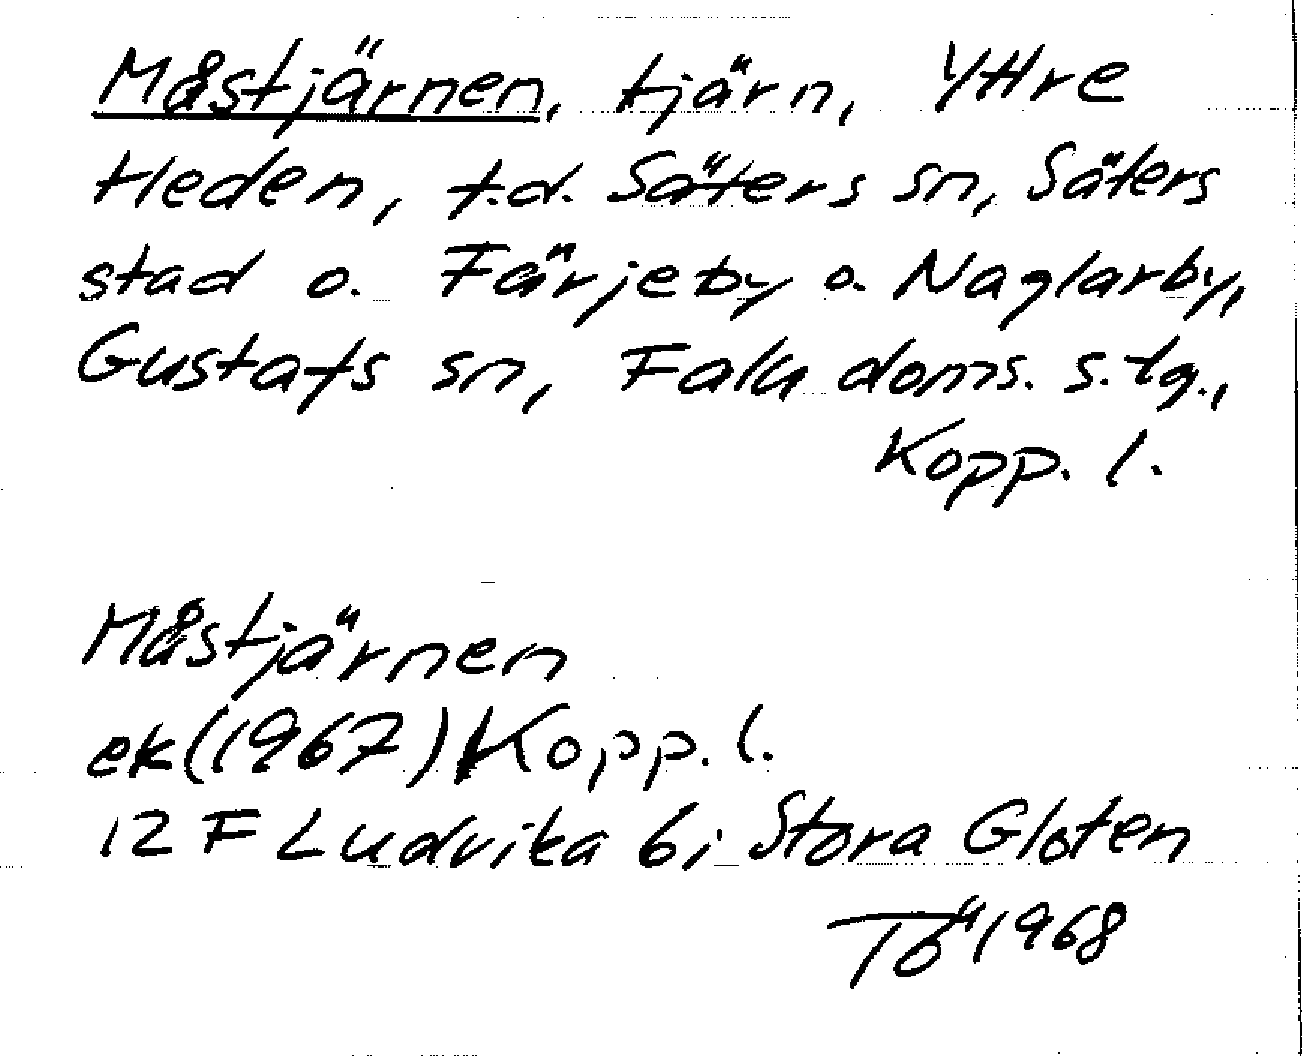 Måstjärnen, tjärn, Yttre
Heden, t.d. Säters sn, Säters
stad o. Färjeby o. Naglarby,
Gustafs sn, Falu doms. s. tg.,
Kopp. l.
Måstjärnen
ek(1967) Kopp. l.
12 F Ludvika 6i Stora Gloten
Tö 1968